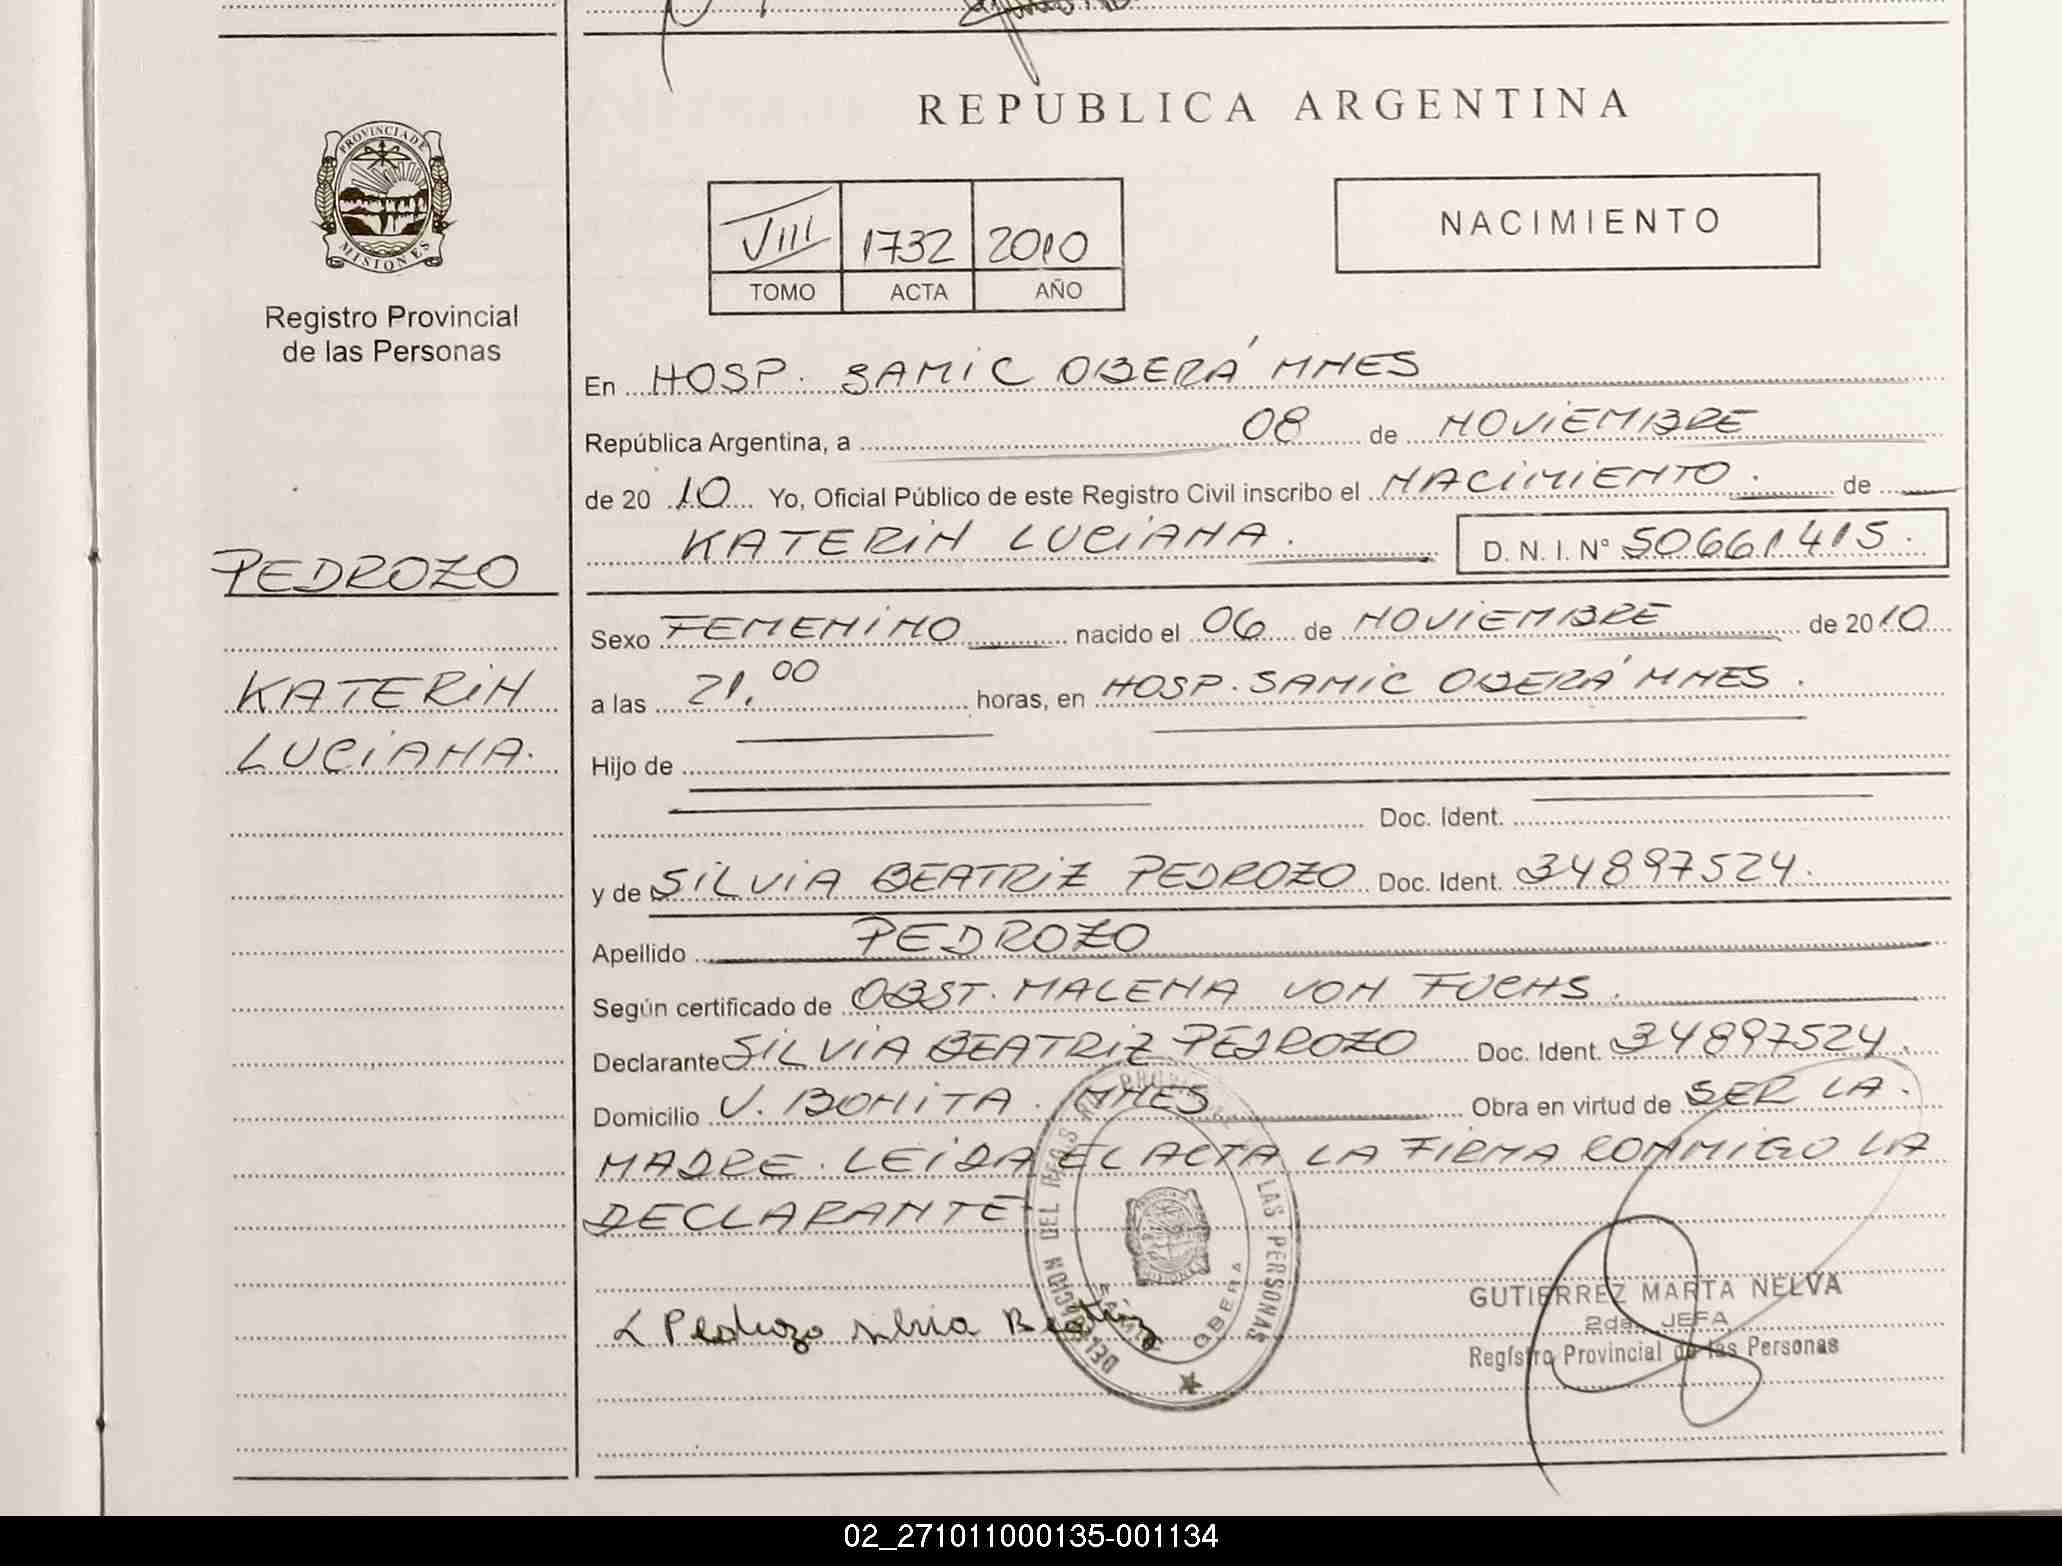 REPUBLICA ARGENTINA
PROVINCIA DE
MISIONES
Registro Provincial
de las Personas
VIII 1732 2010
TOMO ACTA AÑO
NACIMIENTO
En HOSP. SAMIC OBERÁ MNES
República Argentina, a 08 de NOVIEMBRE
de 2010 Yo, Oficial Público de este Registro Civil inscribo el NACIMIENTO. de
KATERIN LUCIANA. D. N. I. N° 50661415.
PEDROZO
KATERIN
LUCIANA.
Sexo FEMENINO nacido el 06 de NOVIEMBRE de 2010
a las 21,00 horas, en HOSP. SAMIC OBERÁ MNES.
Hijo de
Doc. Ident.
y de SILVIA BEATRIZ PEDROZO Doc. Ident. 34897524.
Apellido PEDROZO
Según certificado de OBST. MALENA VON FUCHS.
Declarante SILVIA BEATRIZ PEDROZO Doc. Ident. 34897524.
Domicilio V. BONITA. MNES Obra en virtud de SER LA.
MADRE. LEIDA EL ACTA LA FIRMA CONMIGO LA
DECLARANTE
Pedrozo silvia Beatriz
DEL LAS PERSONAS
OBERA
GUTIERREZ MARTA NELVA
2da. JEFA
Registro Provincial de las Personas
02_271011000135-001134